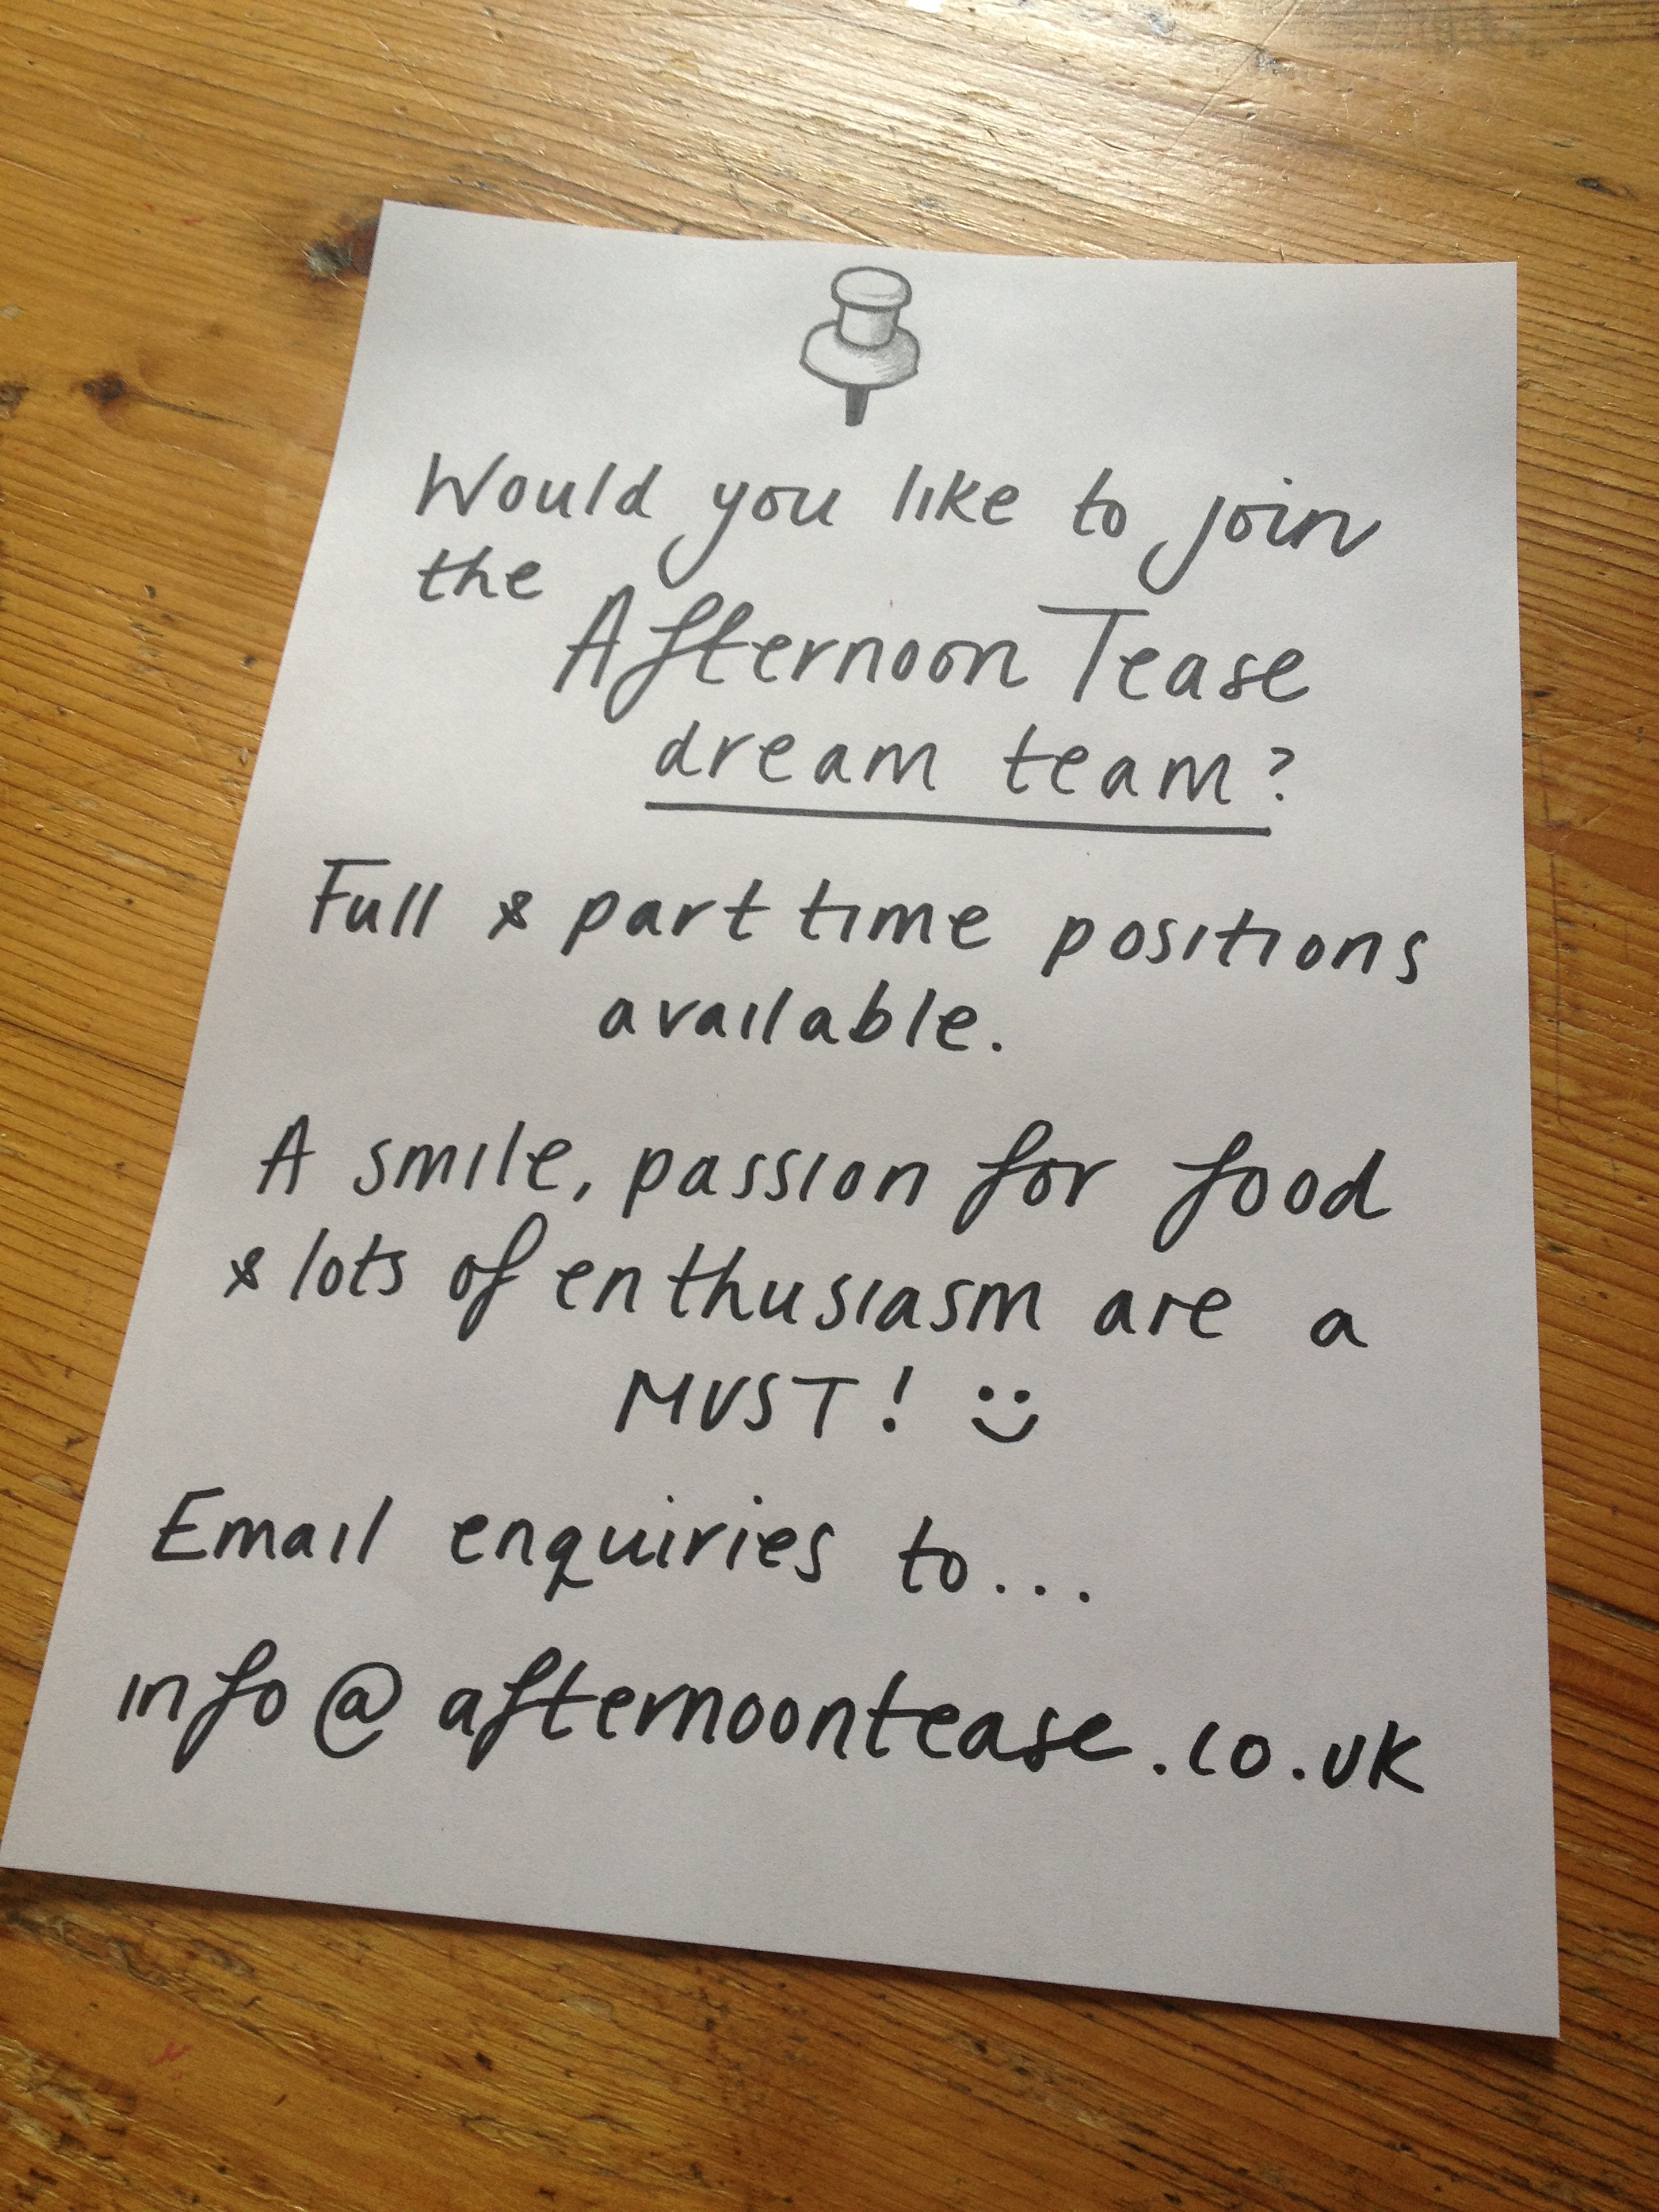 Would you like to join
the
Afternoon Tease
dream team?
Full & part time positions
available.
A smile, passion for food
& lots of enthusiasm are a
MUST! :)
Email enquiries to...
info@afternoontease.co.uk